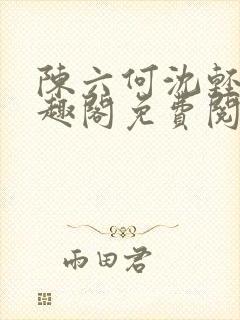 陳六何沈軽
趣閣免費閱
雨田君